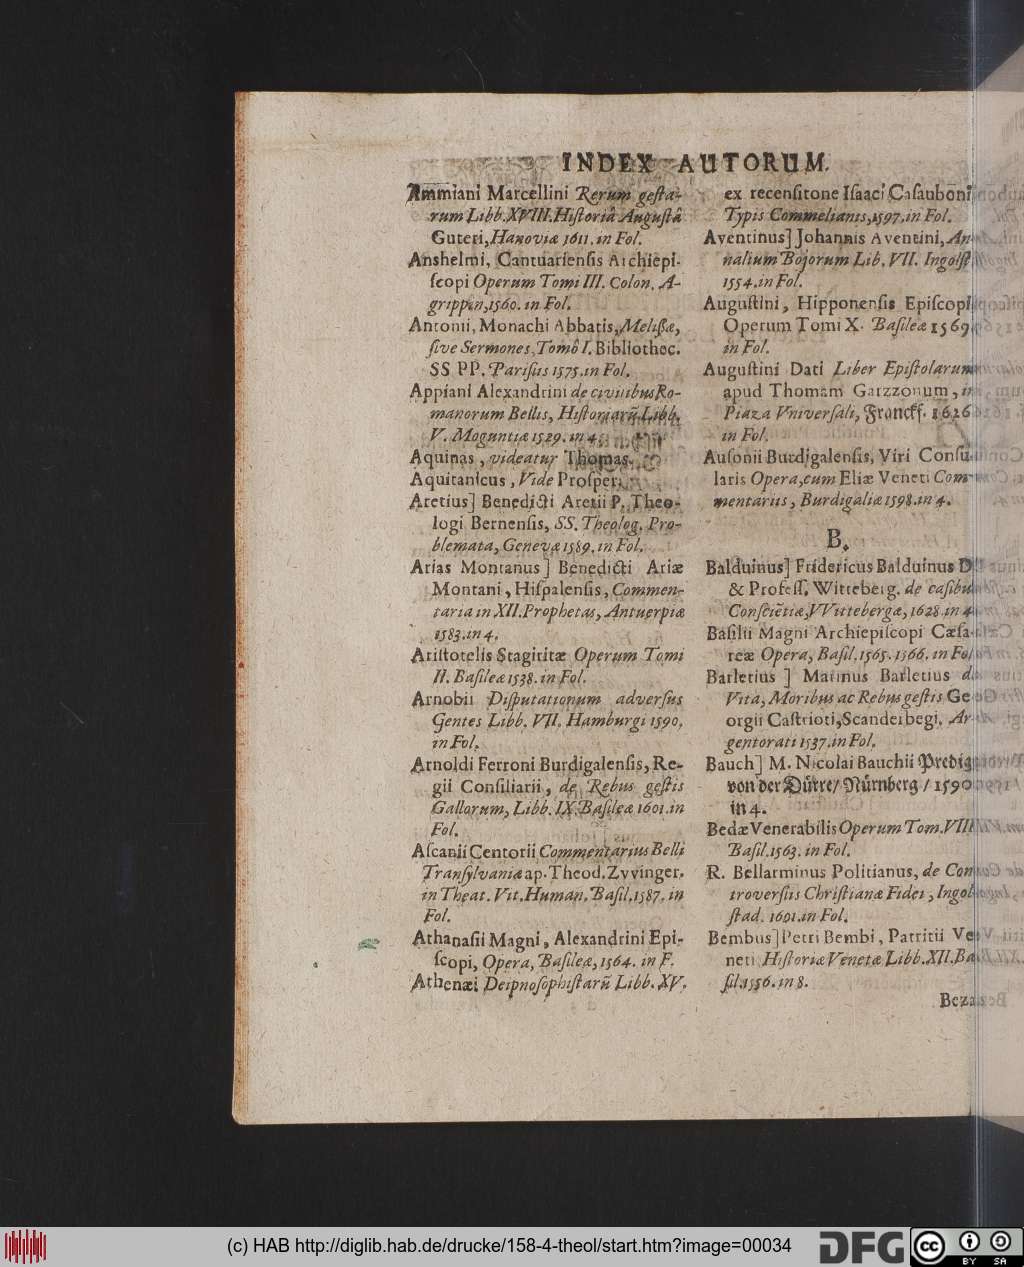 INDEX AUTORUM.
Ammiani Marcellini Rerum geſta-
rum Libb. XVIII. Hiſtoriâ Auguſtâ
Guteri, Hanoviæ 1611. in Fol.
Anshelmi, Cantuarienſis Archiepi-
ſcopi Operum Tomi III. Colon. A-
grippin, 1560. in Fol.
Antonii, Monachi Abbatis, Meliſſæ,
ſive Sermones, Tomô I. Bibliothec.
SS PP. Pariſiis 1575. in Fol.
Appiani Alexandrini de civilibus Ro-
manorum Bellis, Hiſtoriarũ Libb.
V. Moguntiæ 1529. in 4.
Aquinas, videatur Thomas.
Aquitanicus, Vide Proſper.
Aretius] Benedicti Aretii P. Theo-
logi Bernenſis, SS. Theolog. Pro-
blemata, Genevæ 1589. in Fol.
Arias Montanus] Benedicti Ariæ
Montani, Hiſpalenſis, Commen-
taria in XII. Prophetas, Antuerpiæ
1583. in 4.
Ariſtotelis Stagiritæ Operum Tomi
II. Baſileæ 1538. in Fol.
Arnobii Diſputationum adverſus
Gentes Libb. VII. Hamburgi 1590.
in Fol.
Arnoldi Ferroni Burdigalenſis, Re-
gii Conſiliarii, de Rebus geſtis
Gallorum, Libb. IX. Baſileæ 1601. in
Fol.
Aſcanii Centorii Commentarius Belli
Tranſylvaniæ ap. Theod. Zvvinger.
in Theat. Vit. Human. Baſil. 1587. in
Fol.
Athanaſii Magni, Alexandrini Epi-
ſcopi, Opera, Baſileæ, 1564. in F.
Athenæi Deipnoſophiſtarũ Libb. XV.
ex recenſitone Iſaaci Caſauboni
Typis Commelianis, 1597. in Fol.
Aventinus] Johannis Aventini, An-
nalium Bojorum Lib. VII. Ingolſt
1554. in Fol.
Auguſtini, Hipponenſis Epiſcopi
Operum Tomi X. Baſileæ 1569
in Fol.
Auguſtini Dati Liber Epiſtolarum
apud Thomam Garzzonum, in
Piaza Vniverſali, Franckf. 1626
in Fol.
Auſonii Burdigalenſis, Viri Conſu-
laris Opera, cum Eliæ Veneti Com-
mentariis, Burdigaliæ 1598. in 4.
B.
Balduinus] Fridericus Balduinus D.
& Profeſſ. Witteberg. de caſibus
Conſciẽtiæ, VVittebergæ, 1628. in 4
Baſilii Magni Archiepiſcopi Cæſa-
reæ Opera, Baſil. 1565. 1566. in Fol
Barletius] Marinus Barletius de
Vita, Moribus ac Rebus geſtis Ge-
orgii Caſtrioti, Scanderbegi, Ar-
gentorati 1537. in Fol.
Bauch] M. Nicolai Bauchii Predig
von der Dürre/ Nürnberg / 1590
in 4.
Bedæ Venerabilis Operum Tom. VIII
Baſil. 1563. in Fol.
R. Bellarminus Politianus, de Con
troverſiis Chriſtianæ Fidei, Ingol
ſtad. 1601. in Fol.
Bembus] Petri Bembi, Patritii Ve-
neti Hiſtoriæ Venetæ Libb. XII. Ba-
ſil. 1556. in 8.
Beza
(c) HAB http://diglib.hab.de/drucke/158-4-theol/start.htm?image=00034
DFG
cc BY SA